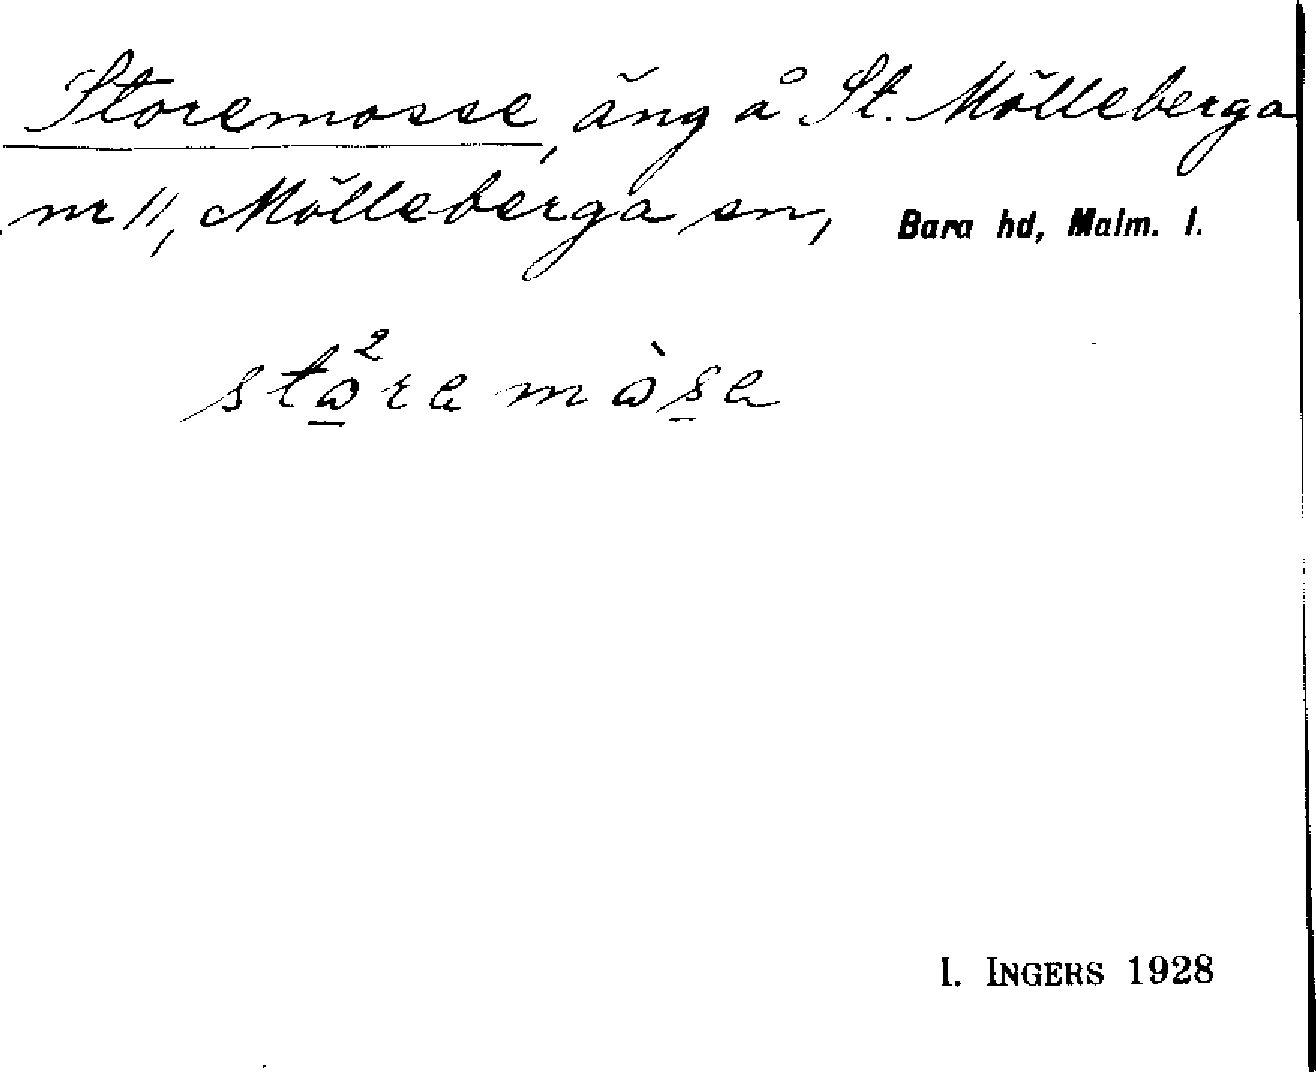 Storemosse, äng å St. Mölleberga
nr 11, Mölleberga sn, Bara hd, Malm. l.
I. INGERS 1928